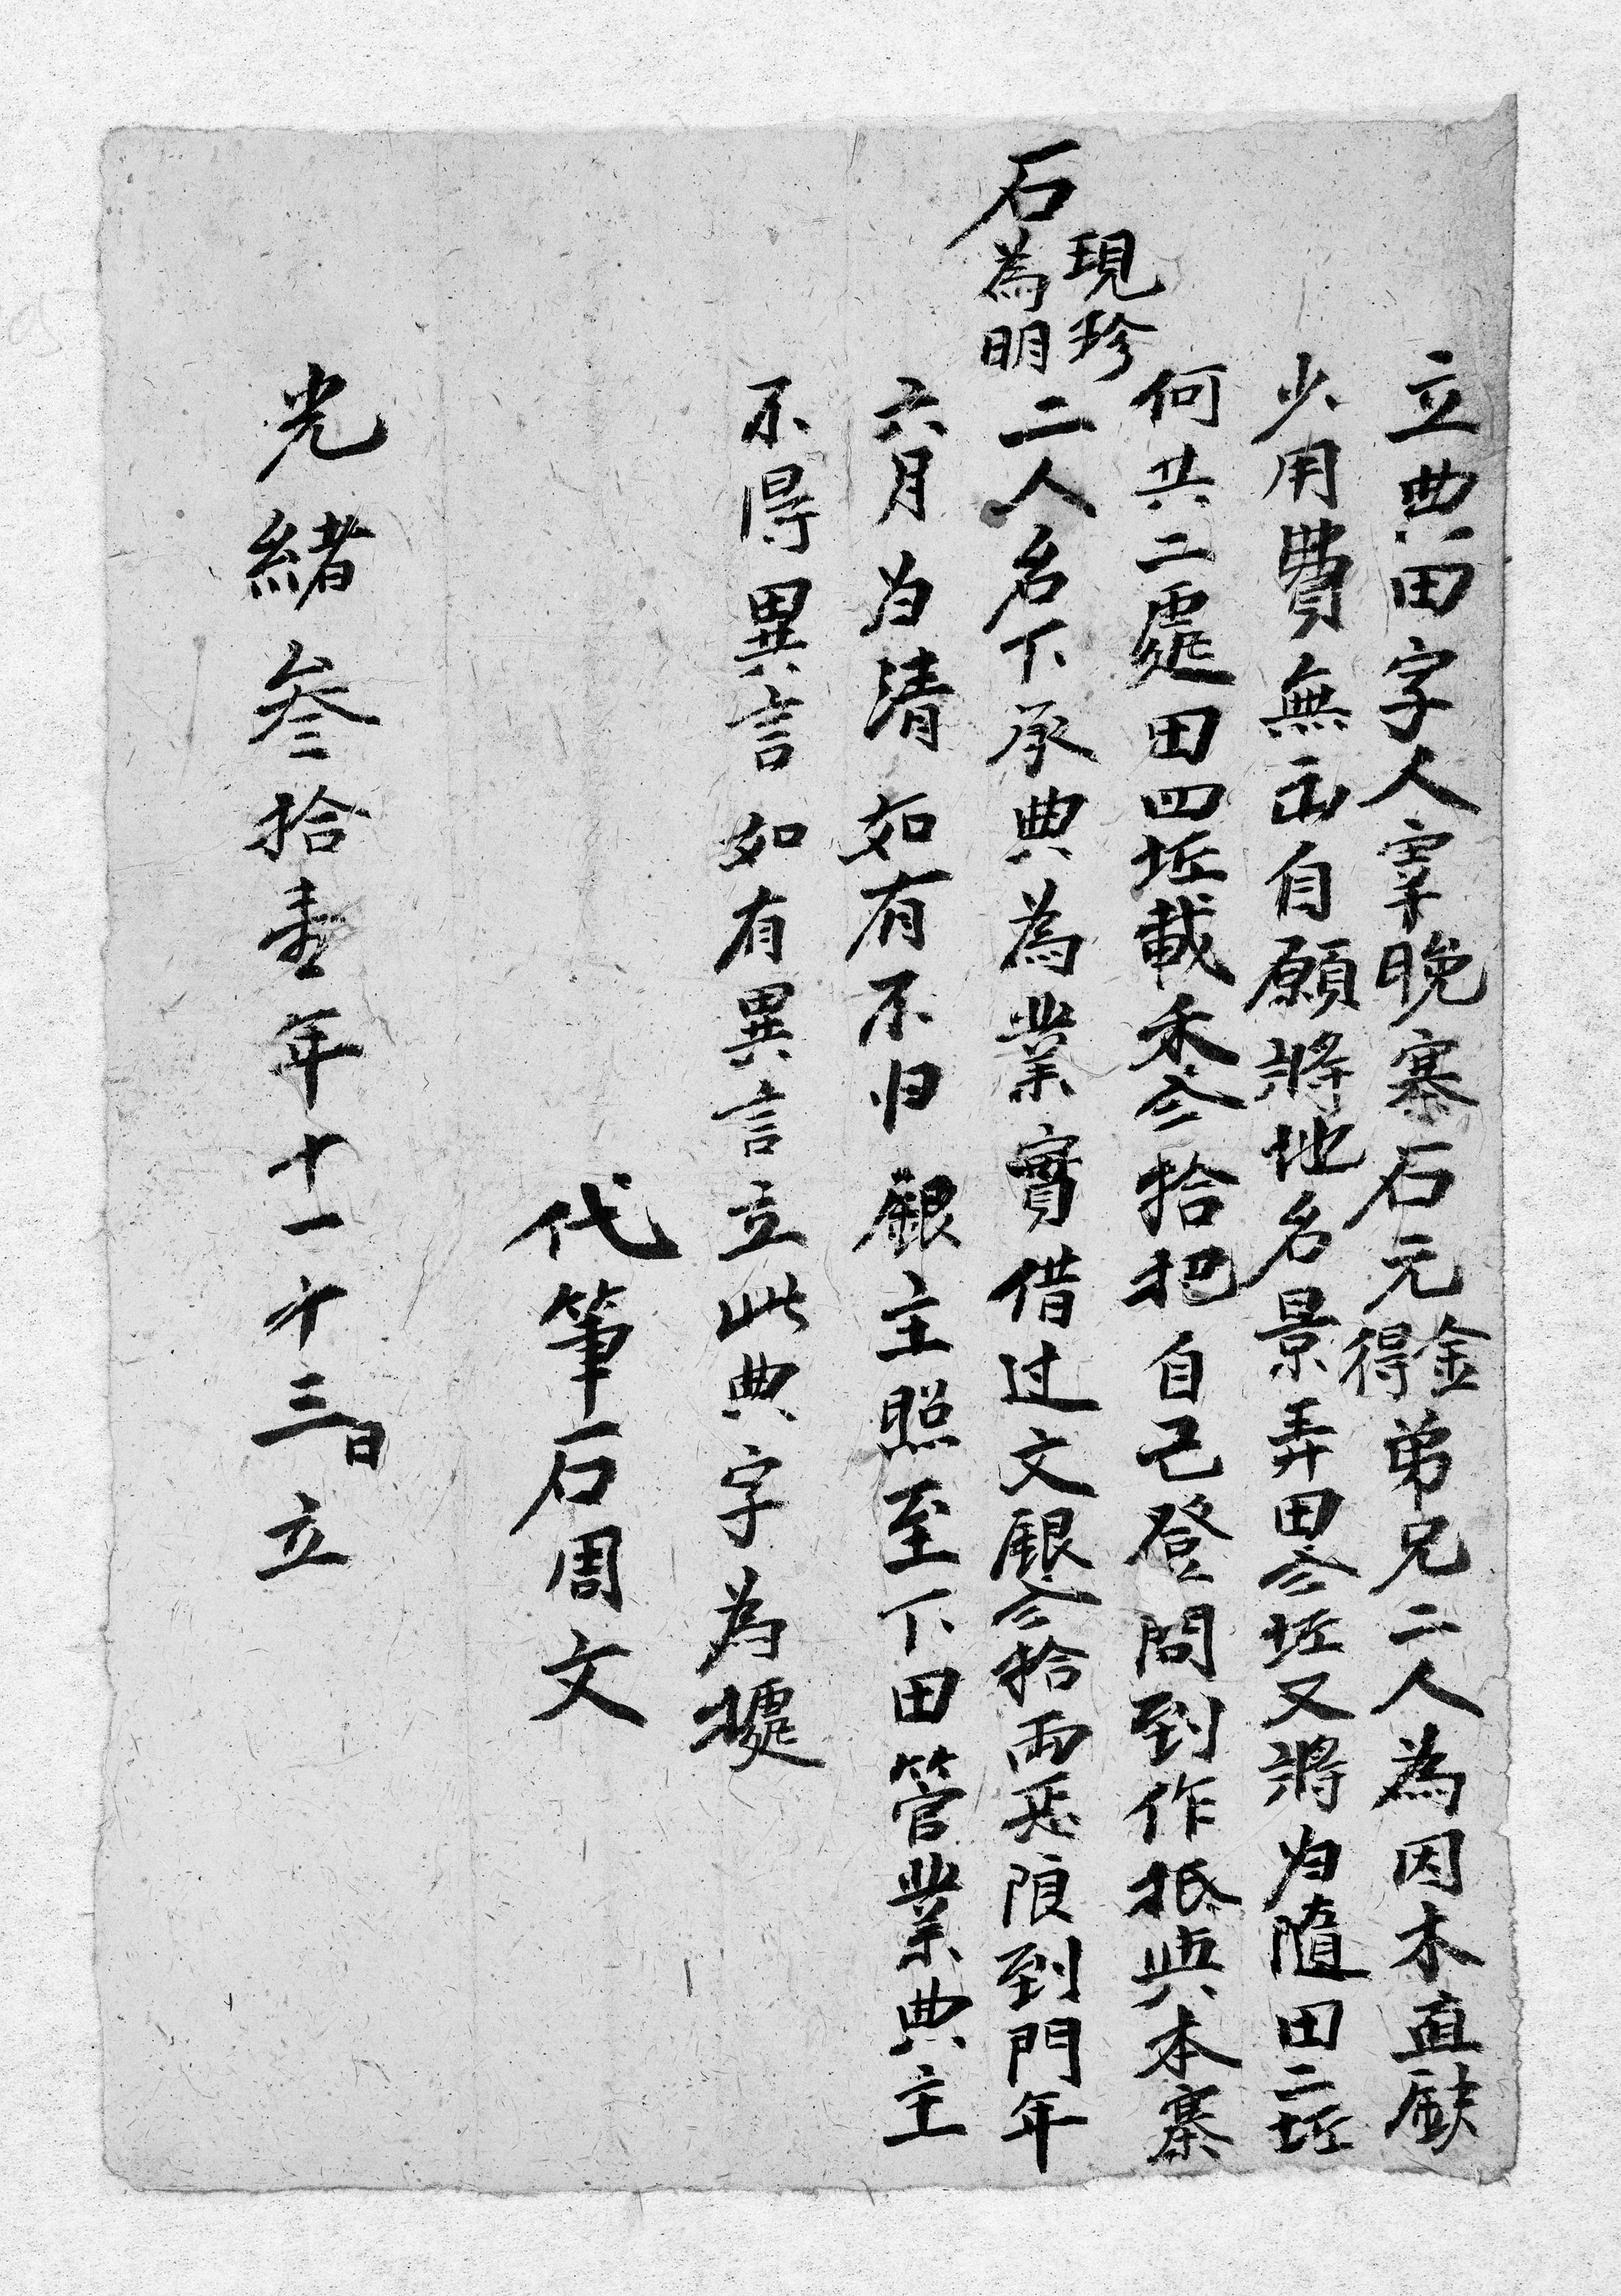 立典田字人宰晚寨石元金得弟兄二人為因木直厭
少用費無出自願將地名景弄田叁坵又將为隨田二坵
何共二處田四坵載禾叁拾把自己登問到作抵與本寨
石現珍為明二人名下承典為業實借过文銀叁拾両㤙限到門年
六月为清如有不归銀主照至下田管業典主
不得異言如有異言立此典字為據
代筆石周文
光緒叁拾壹年十一月十三日立